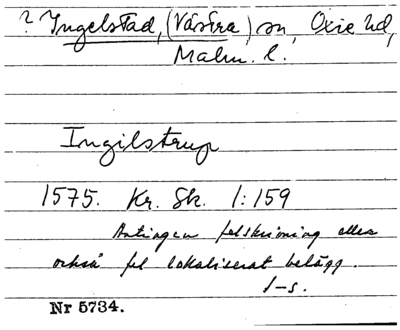 ? Ingelstad, (Västra) sn, Oxie hd,
Malm. l.
Ingilstrup
1575. Kr. Sk. 1:159
Antingen felskrivning eller
också fel lokaliserat belägg.
I-s.
Nr 5734.